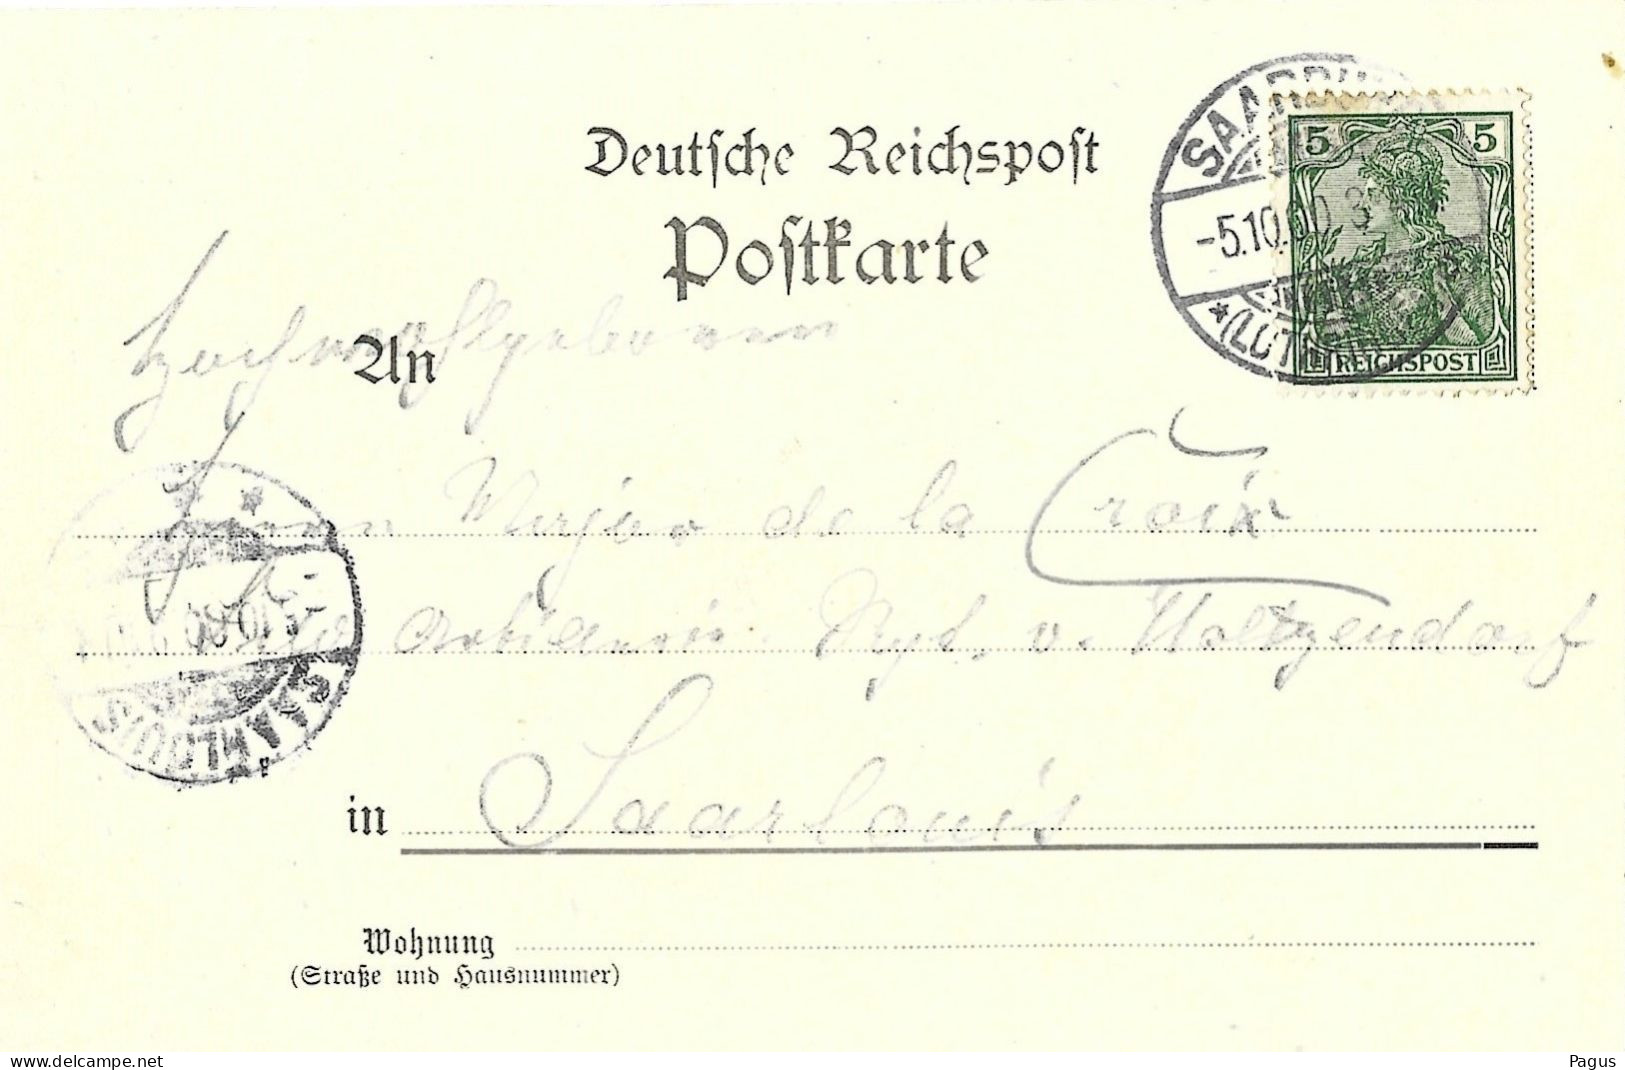 Deutsche Reichspost
Postkarte
5 5
REICHSPOST
-5.10.00 3
*(LÜT
Hochwohlgeboren
An
Herrn Major de la Croix
v. Holtzendorf
SAARLOUIS
in Saarlouis
Wohnung
(Straße und Hausnummer)
www.delcampe.net
Pagus